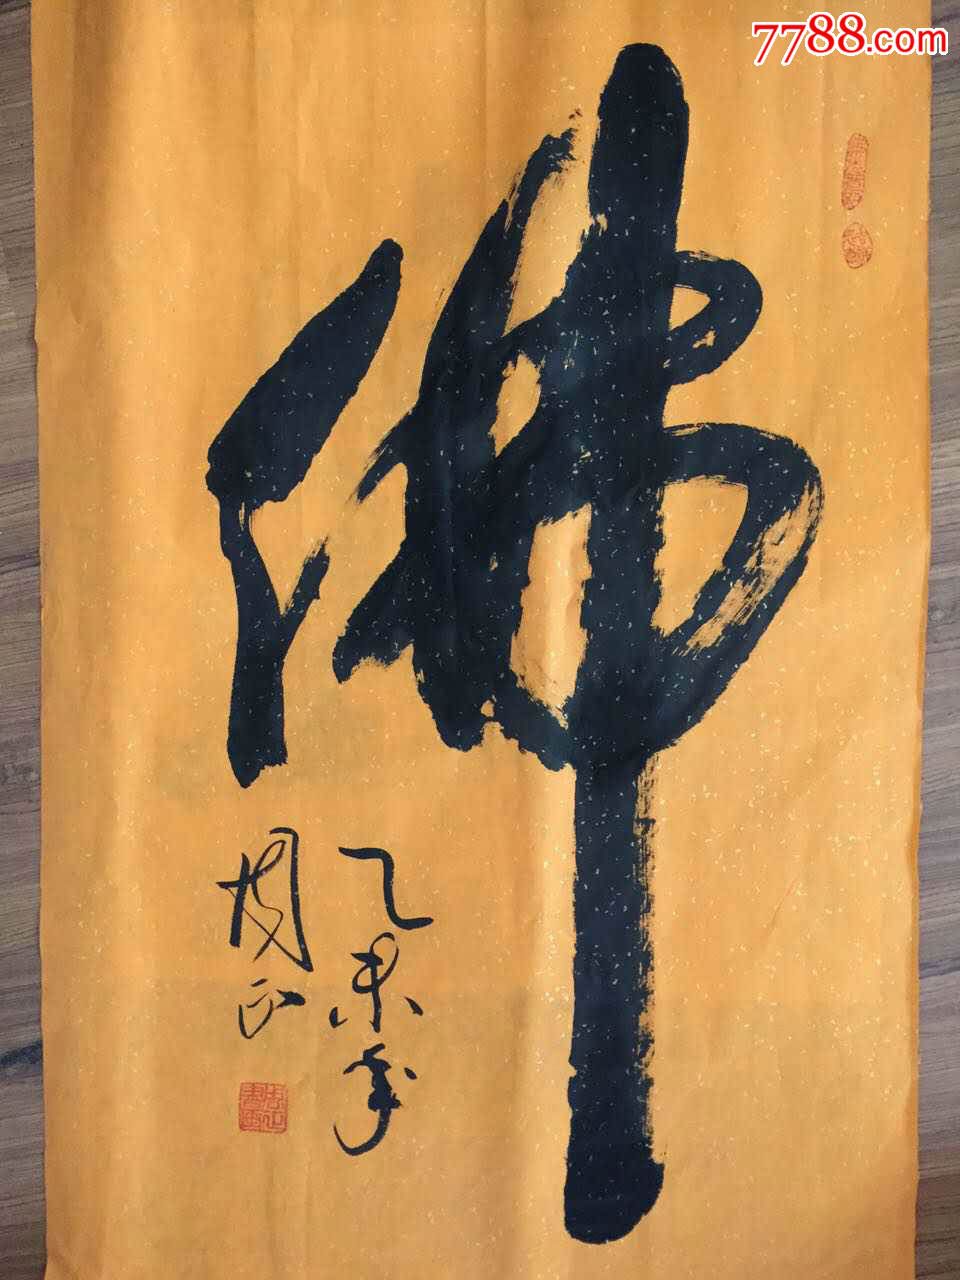 7788.com
佛
乙未年
周正